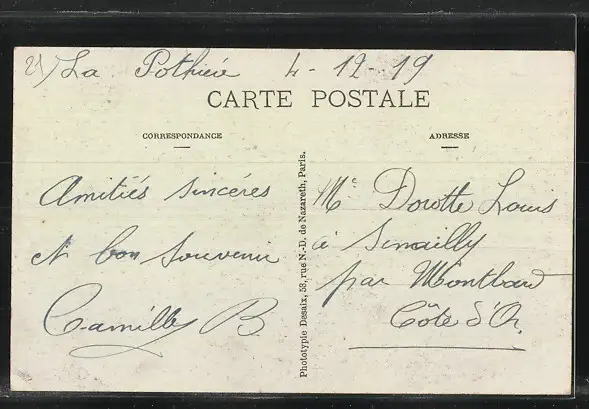 21) La Pothière 4-12-19
CARTE POSTALE
CORRESPONDANCE
Amitiés sincères
et bon souvenir
Camille B.
Phototypie Desaix, 53, rue N.-D. de Nazareth, Paris.
ADRESSE
Me Dorotte Louis
à Senailly
par Montbard
Côte d'Or,